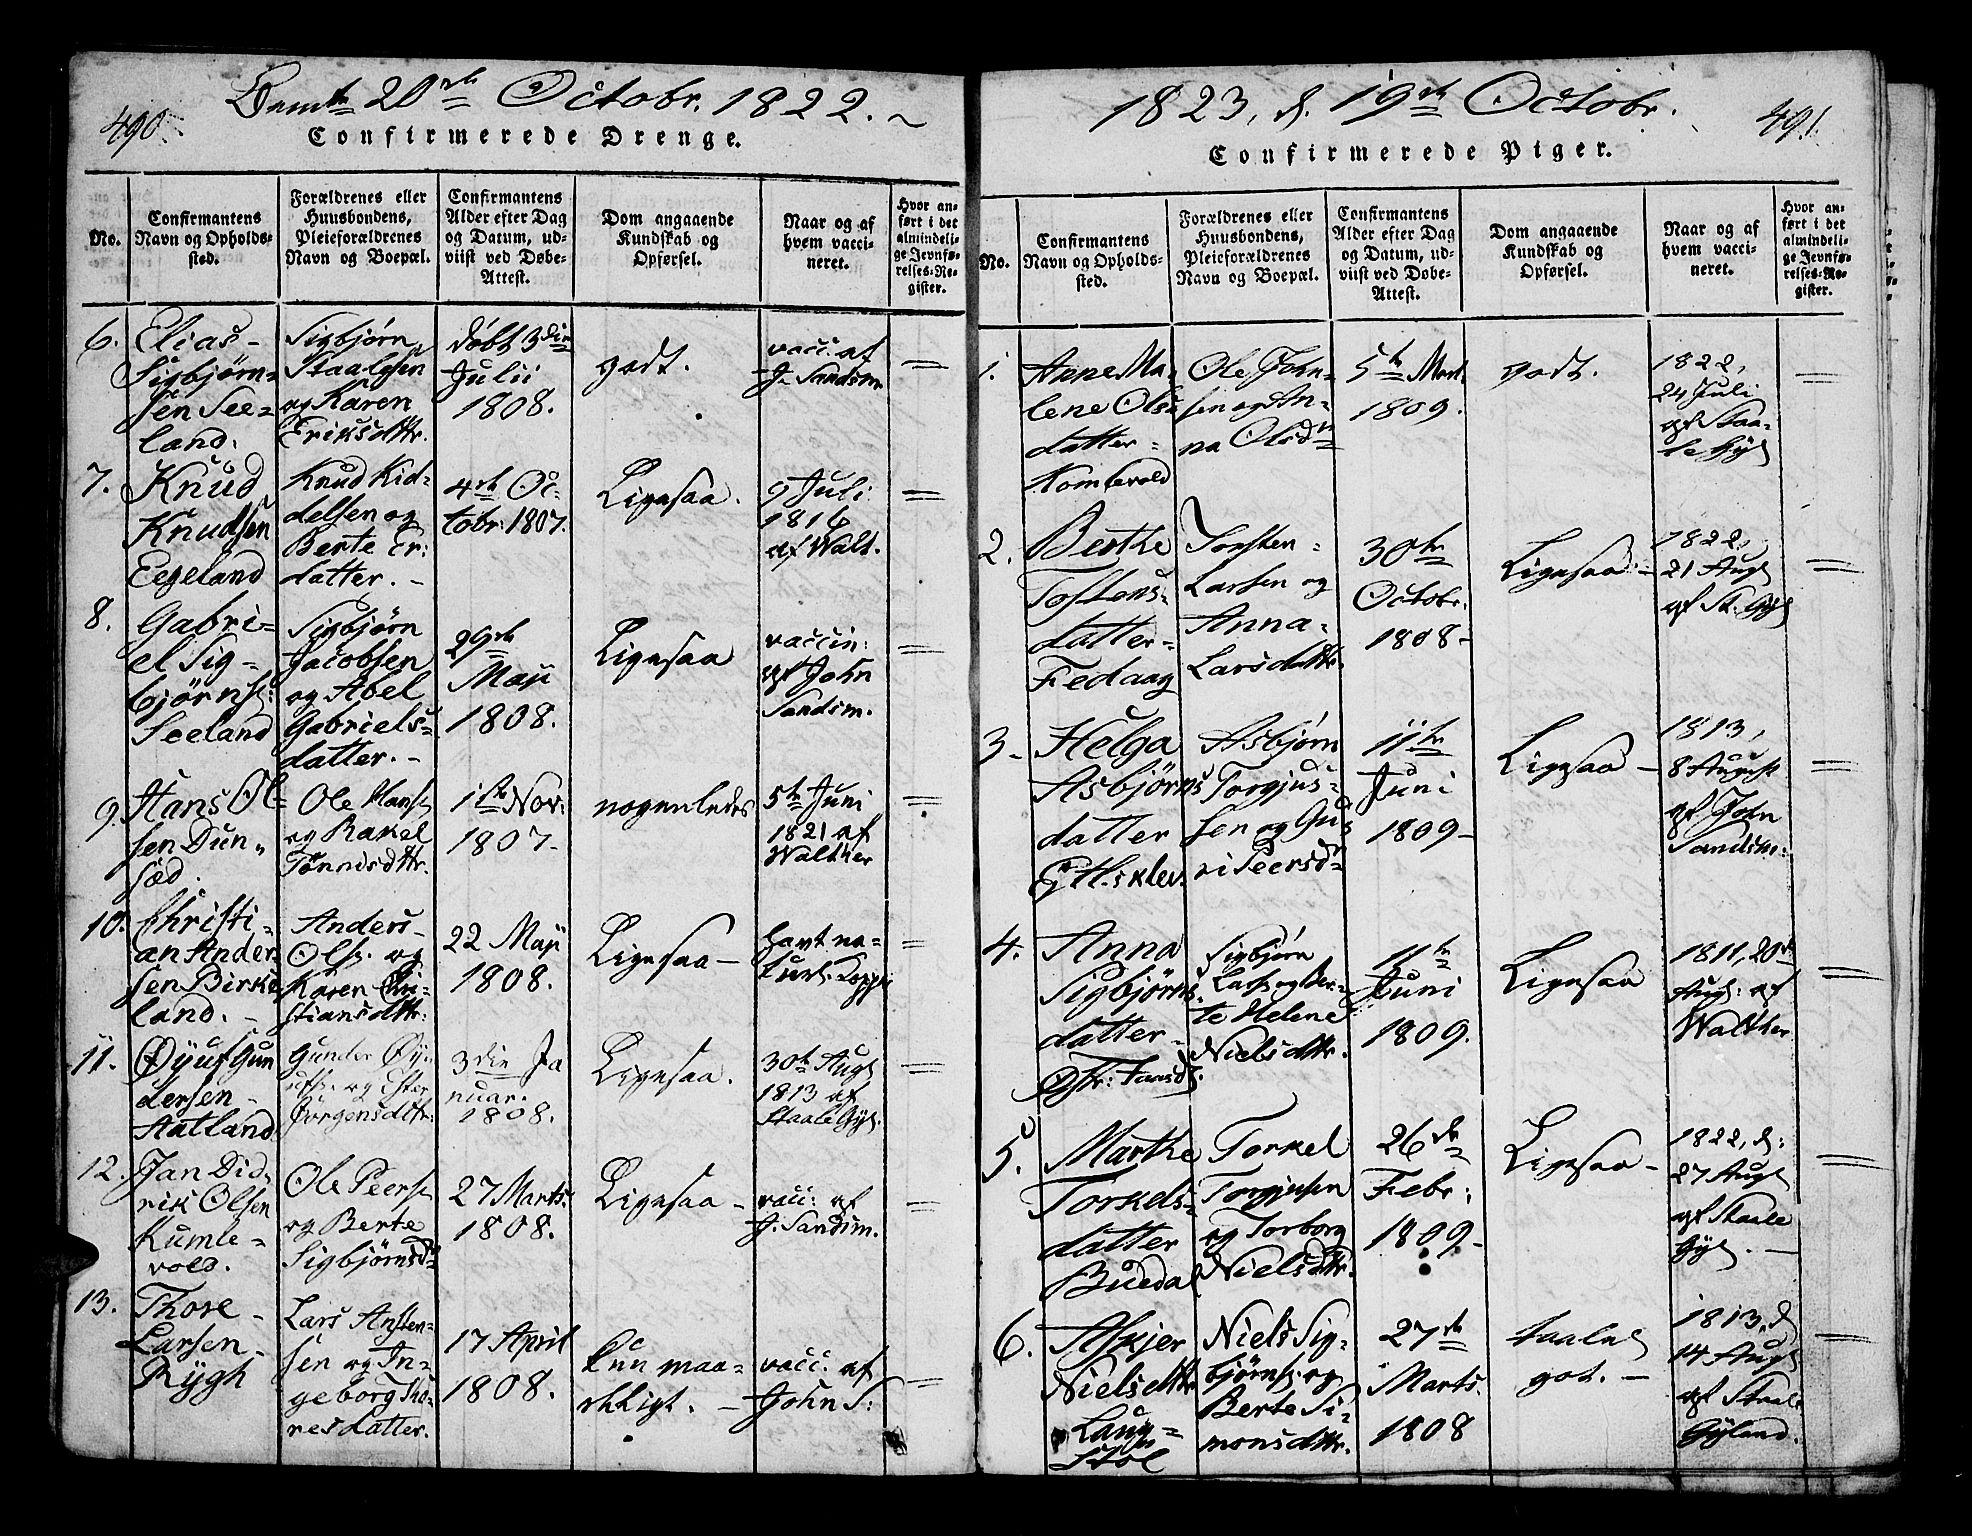 490.
Dom 20de Octobr. 1822.
Confirmerede Drenge.
No.
Confirmantens
Navn og Opholds-
sted.
Forældrenes eller
Huusbondens,
Pleieforældrenes
Navn og Boepæl.
Confirmantens
Alder efter Dag
og Datum, ud-
viist ved Døbe-
Attest.
Dom angaaende
Kundskab og
Opførsel.
Naar og af
hvem vacci-
neret.
Hvor an-
ført i det
almindeli-
ge Jevnfø-
relses-Re-
gister.
6.
Elias
Sigbjørn-
sen See-
land.
Sigbjørn
Staalesen
og Karen
Eriksdttr.
døbt 3die
Julii
1808.
godt.
vacc. af
J. Sandsm.
=
7.
Knud
Knudsen
Eegeland
Knud Kid-
delsen og
Berte Er:
datter. -
4de Oc-
tobr: 1807.
Ligesaa.
9 Juli
1816
af Walt.
=
8.
Gabri-
el Sig-
bjørns:
Seeland
Sigbjørn
Jacobsen
og Abel
Gabriels-
datter. -
29de
Maji
1808.
Ligesaa
vaccin:
af John
Sandsm.
=
9.
Hans Ol-
sen Dun-
sæd.
Ole Hans.
og Rakel
Tønnesdttr.
1ste Nov:
1807.
nogenledes
5te Juni
1821 af
Walther
=
10.
Christi-
an Ander
sen Birke
land. -
Anders
Ols. og
Karen Chri-
stiansdttr:
22 Maji
1808.
Ligesaa -
havt na-
turl. Kopper
=
11.
Øyuf Gun
dersen
Aatland
Gunder Øy-
ufs. og Ester
Jørgensdttr:
3die Ja
nuar.
1808.
Ligesaa.
30te Aug
1813 af
Staale Gyl.
=
12.
Jan Did
rik Olsen
Kumle-
vold.
Ole Peers.
og Berte
Sigbjørnsd
27 Marts.
1808.
Ligesaa -
vacc: af
J. Sandsm.
=
13.
Thore
Larsen
Rygh
Lars Ansten-
sen og In-
geborg Tho-
resdatter.
17 April
1808.
kun maa-
deligt. -
vacc: af
John S:
=
1823, d. 19de Octobr.
491.
Confirmerede Piger.
No.
Confirmantens
Navn og Opholds-
sted.
Forældrenes eller
Huusbondens,
Pleieforældrenes
Navn og Boepæl.
Confirmantens
Alder efter Dag
og Datum, ud-
viist ved Døbe-
Attest.
Dom angaaende
Kundskab og
Opførsel.
Naar og af
hvem vacci-
neret.
Hvor an-
ført i det
almindeli-
ge Jevnfø-
relses-Re-
gister.
1.
Anne Ma-
lene Ols
datter
Komlevold
Ole John-
sen og An-
na Olsdtr
5te Mart.
1809.
godt.
1822,
24 Juli
af Staa-
le Gyl
=
2.
Berthe
Tostens-
datter
Fedaag
Torsten
Larsen og
Anna
Larsdattr.
30te
Octobr.
1808
Ligesaa -
1822,
21 Aug
af St. Gyl
=
3
Helga
Asbjørns
datter
Etlisklev.
Asbjørn
Torgjus-
sen og Gu-
ri Peersdr
11te
Juni
1809
Ligesaa -
1813,
8 August
af John
Sandsm:
=
4.
Anna
Sigbjørns
datter
Sigbjørn
Lars. og Ber-
te Helene
Nielsdttr.
11te
Juni
1809.
Ligesaa
1811, 20de
Aug: af
Walther
=
5.
Marthe
Torkels-
datter
Buedal
Torkel
Torgjusen
og Torborg
Nielsdttr.
26de
Febr:
1809
Ligesaa -
1822, d:
27 Aug
af Staale
Gyl. -
=
6.
Askjer
Nielsdttr
Laug-
Stol
Niels Sig-
bjørns. og
Berte Si-
monsdttr.
27de
Marts.
1808
taalel
got. -
1813, d
14 Aug
af Staale
Gyland.
=